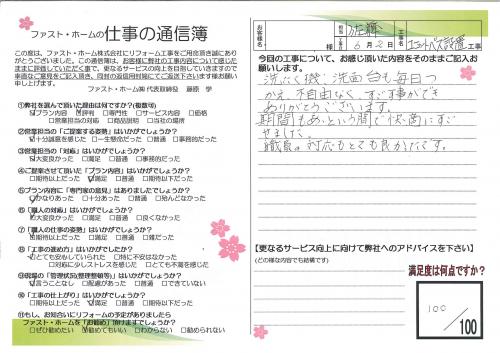 ファスト・ホームの仕事の通信簿
この度は、ファスト・ホーム株式会社にリフォーム工事をご用命頂き誠にあり
がとうございました。この通信簿は、お客様に弊社工事内容について感じた
ままに評価していただく事で、更なるサービス向上を目指していきますので
率直なご意見をご記入頂き、同封の返信用封筒にてご返送下さいます様お願い
申し上げます。
ファスト・ホーム㈱ 代表取締役 藤原 学
①弊社を選んで頂いた理由は何ですか？(複数可)
プラン内容 評判 □専門性 □サービス内容 □価格
□営業担当の対応 □商品説明 □当社の場所
②営業担当の「ご提案する姿勢」はいかがでしょうか？
十分誠意を感じた □一生懸命だった □普通 □事務的だった
③営業担当の「対応」はいかがでしょうか？
大変良かった □満足 □普通 □不満
④ご提案させて頂いた「プラン内容」はいかがでしょうか？
□期待以上だった 満足 □普通 □期待以下だった
⑤プラン内容に「専門家の意見」はありましたでしょうか？
かなりあった □十分あった □普通 □殆んどなかった
⑥「職人の対応」はいかがでしょうか？
大変良かった □満足 □普通 □良くなかった
⑦「職人の仕事の姿勢」はいかがでしょうか？
□期待以上だった 満足 □普通 □期待以下だった
⑧「工事の進めかた」はいかがでしたか？
とても安心していられた □特に不安はなかった
□対応に少しストレスを感じた □とても不満を感じた
⑨現場の「管理状況(整理整頓等)」はいかがでしょうか？
言うことなし □配慮があった □普通 □できていない
⑩「工事の仕上がり」はいかがでしょうか？
□期待以上だった 満足 □普通 □期待以下だった
⑪もし、お知合いにリフォームの予定がありましたら
ファスト・ホームを「お勧め」頂けますでしょうか？
□ぜひ勧めたい 勧めてもいい □わからない □勧められない
お客様名
佐藤
様
工事名
6月2日
ユニットバス設置 工事
今回の工事について、お感じ頂いた内容をそのままご記入お
願いします。
洗たく機、洗面台も毎日つ
かえ、不自由なく、すご事ができ
ありがとうございます。
期間もあっという間で快適にすご
せました。
職員の対応もとても良かったです。
【更なるサービス向上に向けて弊社へのアドバイスを下さい】
(どの様な内容でも結構です)
満足度は何点ですか？
100
/100